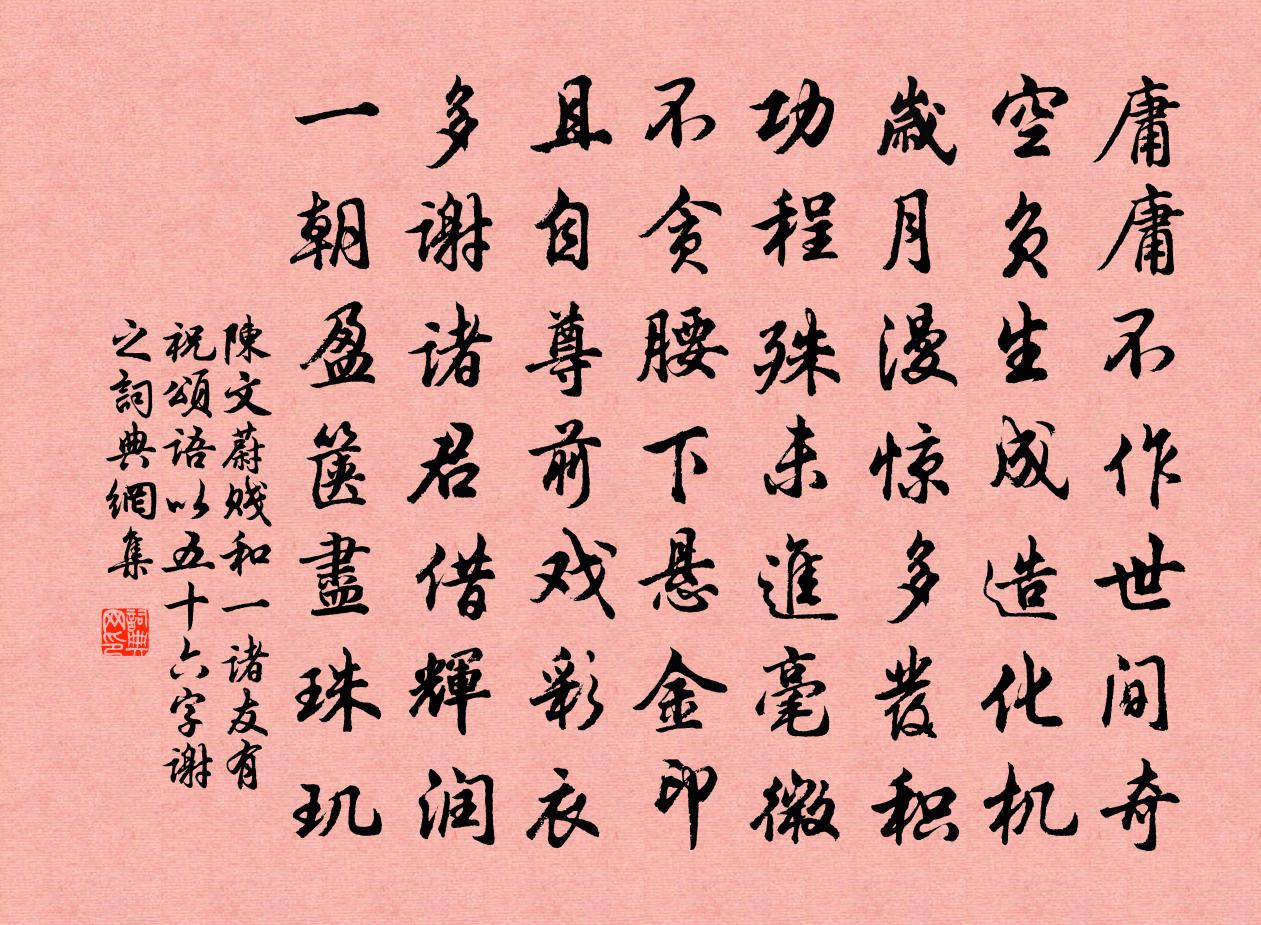 庸庸不作世间奇
空负生成造化机
歲月漫惊多發积
功程殊未進毫微
不贪腰下悬金印
且自尊前戏彩衣
多谢诸君借輝润
一朝盈箧盡珠玑
陳文蔚贱和一诸友有
祝頌语以五十六字谢
之詞典網集
詞典网印